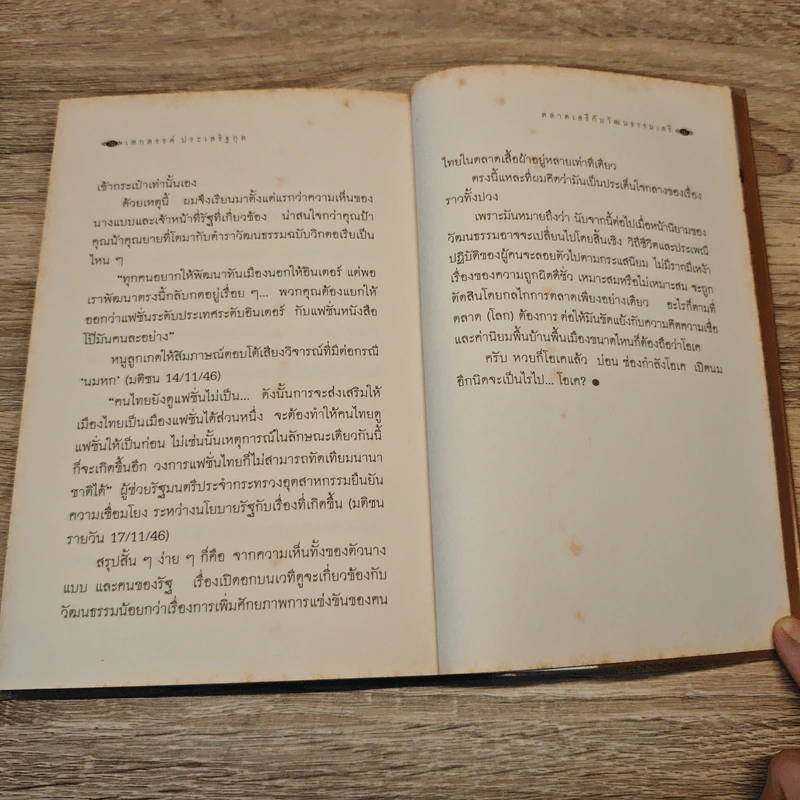 เสกสรรค์ ประเสริฐกุล
เข้ากระเป๋าเท่านั้นเอง
ด้วยเหตุนี้ ผมจึงเรียนมาตั้งแต่แรกว่าความเห็นของ
นางแบบและเจ้าหน้าที่รัฐที่เกี่ยวข้อง น่าสนใจกว่าคุณป้า
คุณน้าคุณยายที่โตมากับตำราวัฒนธรรมฉบับวิกตอเรียเป็น
ไหน ๆ
“ทุกคนอยากให้พัฒนาทันเมืองนอกให้อินเตอร์ แต่พอ
เราพัฒนาตรงนี้กลับกดอยู่เรื่อย ๆ... พวกคุณต้องแยกให้
ออกว่าแฟชั่นระดับประเทศระดับอินเตอร์ กับแฟชั่นหนังสือ
โป๊มันคนละอย่าง”
หนูลูกเกดให้สัมภาษณ์ตอบโต้เสียงวิจารณ์ที่มีต่อกรณี
‘นมหก’ (มติชน 14/11/46)
“คนไทยยังดูแฟชั่นไม่เป็น... ดังนั้นการจะส่งเสริมให้
เมืองไทยเป็นเมืองแฟชั่นได้ส่วนหนึ่ง จะต้องทำให้คนไทยดู
แฟชั่นให้เป็นก่อน ไม่เช่นนั้นเหตุการณ์ในลักษณะเดียวกันนี้
ก็จะเกิดขึ้นอีก วงการแฟชั่นไทยก็ไม่สามารถทัดเทียมนานา
ชาติได้” ผู้ช่วยรัฐมนตรีประจำกระทรวงอุตสาหกรรมยืนยัน
ความเชื่อมโยง ระหว่างนโยบายรัฐกับเรื่องที่เกิดขึ้น (มติชน
รายวัน 17/11/46)
สรุปสั้น ๆ ง่าย ๆ ก็คือ จากความเห็นทั้งของตัวนาง
แบบ และคนของรัฐ เรื่องเปิดอกบนเวทีดูจะเกี่ยวข้องกับ
วัฒนธรรมน้อยกว่าเรื่องการเพิ่มศักยภาพการแข่งขันของคน
ตลาดเสรีกับวัฒนธรรมเสรี
ไทยในตลาดเสื้อผ้าอยู่หลายเท่าทีเดียว
ตรงนี้แหละที่ผมคิดว่ามันเป็นประเด็นใจกลางของเรื่อง
ราวทั้งปวง
เพราะมันหมายถึงว่า นับจากนี้ต่อไปเมื่อหน้านิยามของ
วัฒนธรรมอาจจะเปลี่ยนไปโดยสิ้นเชิง วิถีชีวิตและประเพณี
ปฏิบัติของผู้คนจะลอยตัวไปตามกระแสนิยม ไม่มีรากมีเหง้า
เรื่องของความถูกผิดดีชั่ว เหมาะสมหรือไม่เหมาะสม จะถูก
ตัดสินโดยกลไกการตลาดเพียงอย่างเดียว อะไรก็ตามที่
ตลาด (โลก) ต้องการ ต่อให้มันขัดแย้งกับความคิดความเชื่อ
และค่านิยมพื้นบ้านพื้นเมืองขนาดไหนก็ต้องถือว่าโอเค
ครับ หวยก็โอเคแล้ว บ่อน ซ่องกำลังโอเค เปิดนม
อีกนิดจะเป็นไรไป... โอเค? ●